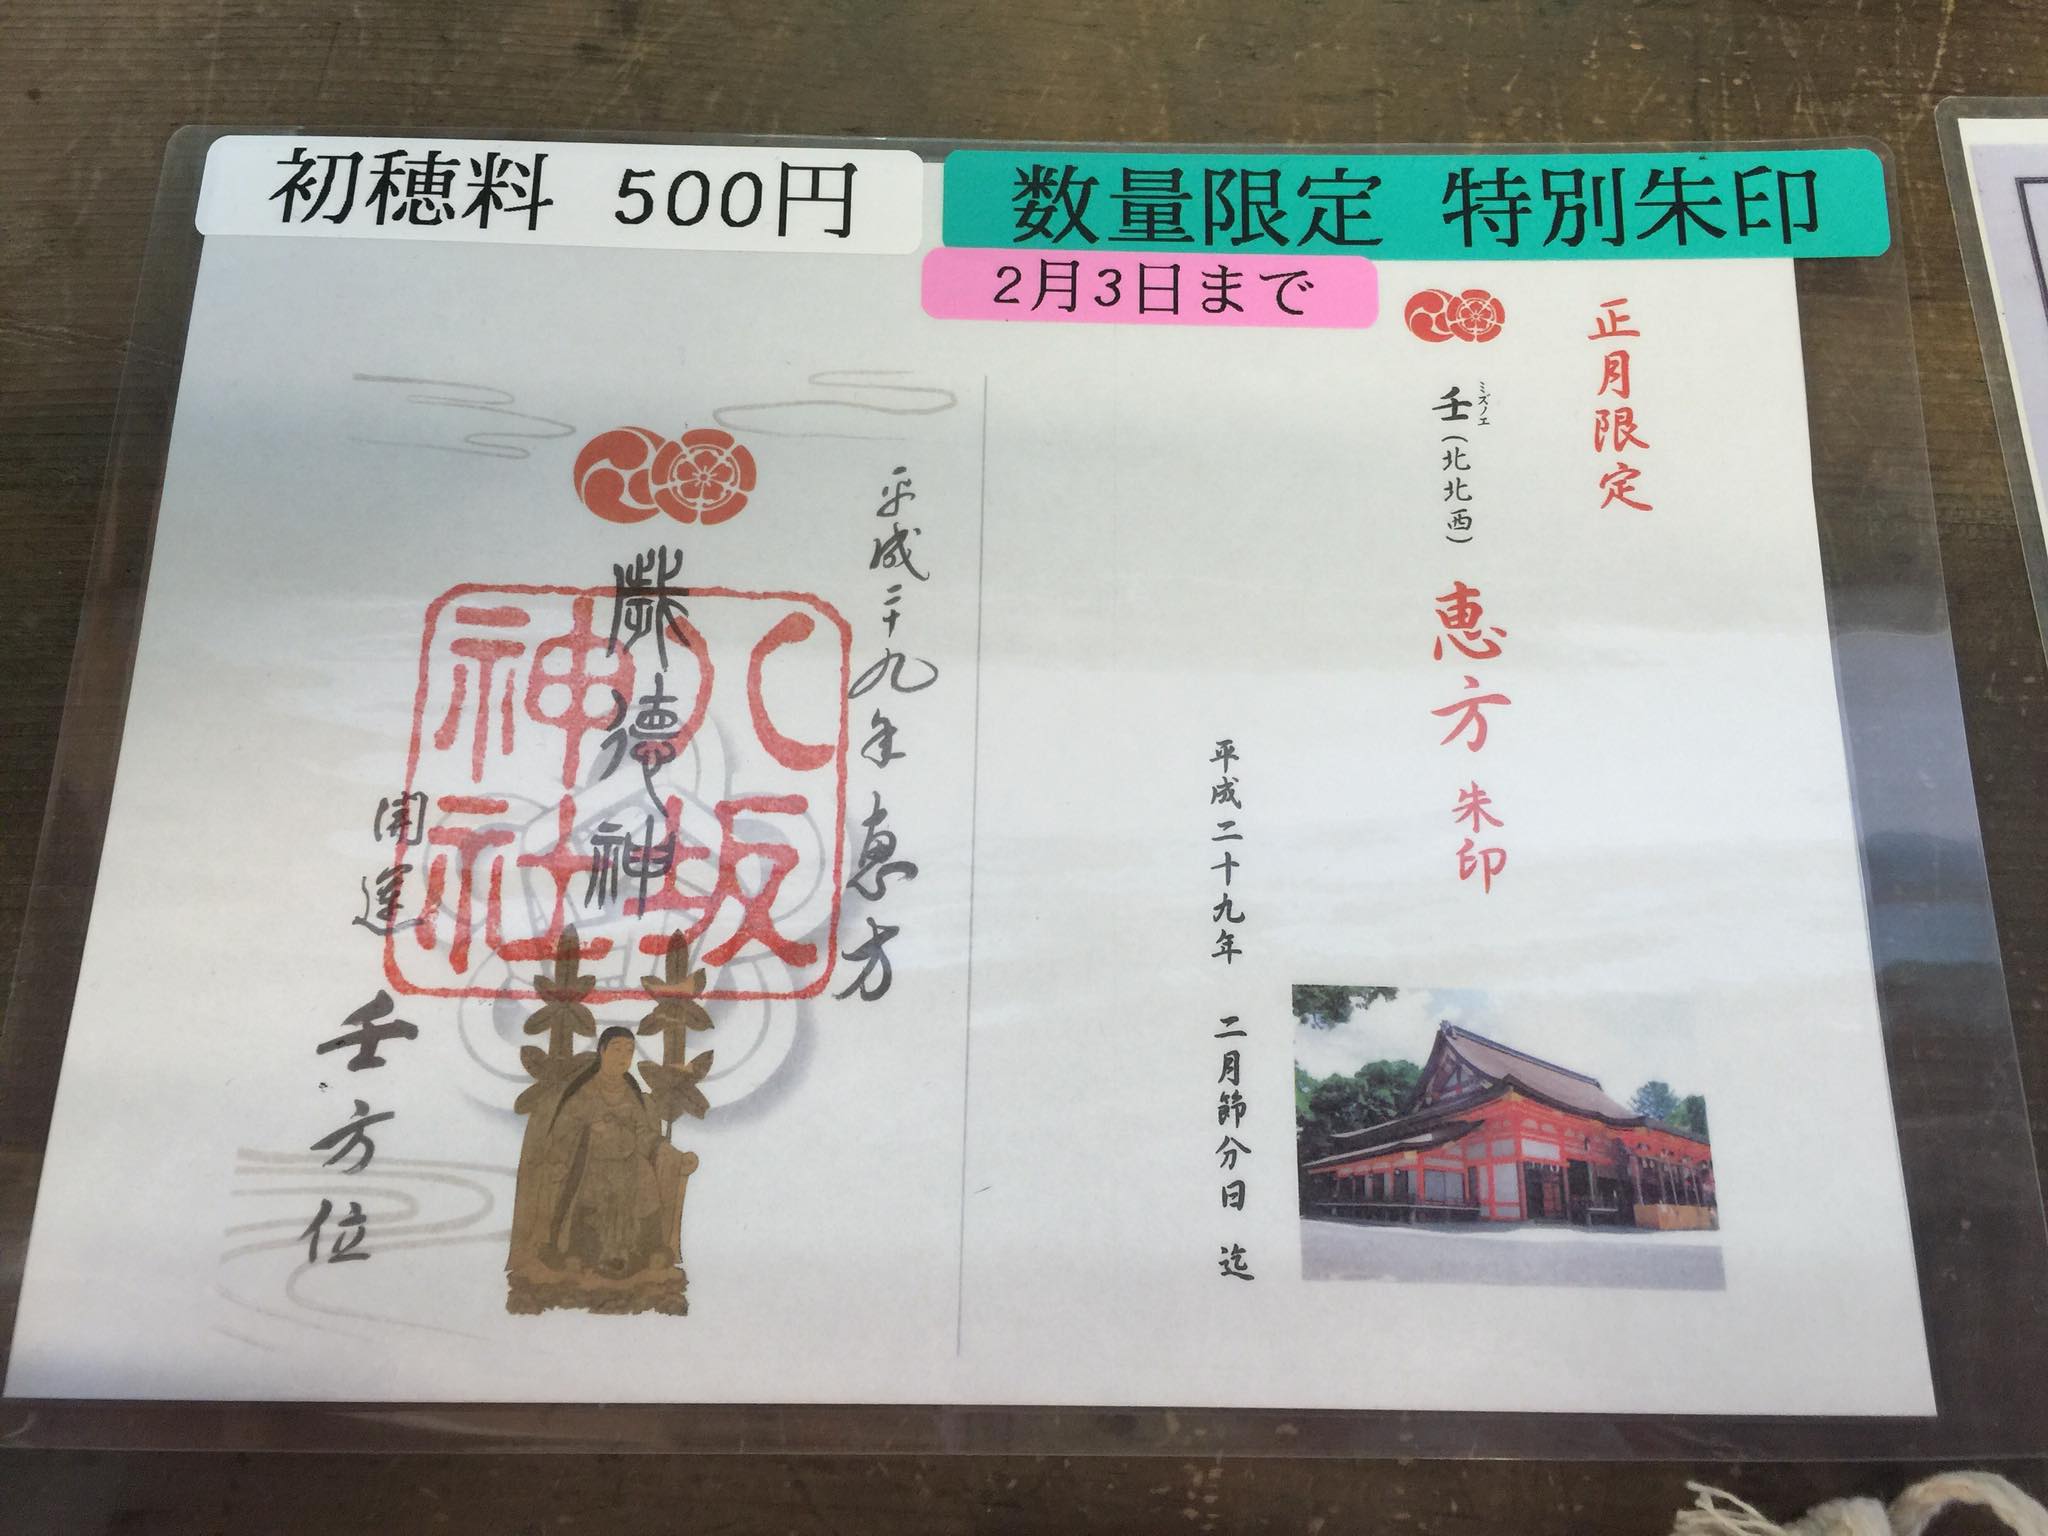 初穂料 500円
数量限定 特別朱印
2月3日まで
正月限定
壬(北北西) 恵方 朱印
ミズノエ
平成二十九年 二月節分日 迄
平成二十九年 恵方
歳德神
八坂
神社
開運 壬方位